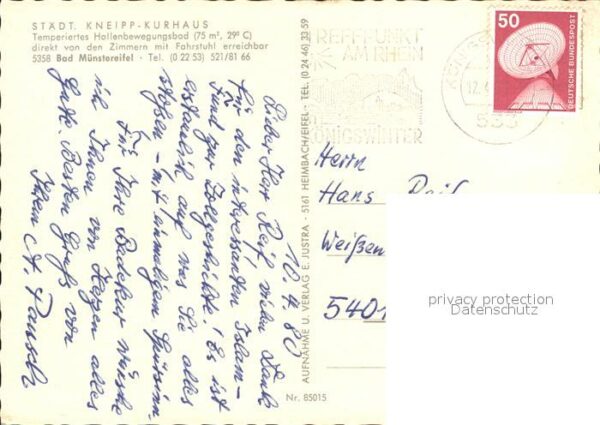 STÄDT. KNEIPP-KURHAUS
Temperiertes Hallenbewegungsbad (75 m², 29° C)
direkt von den Zimmern mit Fahrstuhl erreichbar
5358 Bad Münstereifel - Tel. (0 22 53) 521/81 66
10.4.80
Lieber Herr Reif, vielen Dank
für den interessanten Islam-
Fund zur Zeitgeschichte! Es ist
erstaunlich auf was Sie alles
stoßen - mit einmaligem Spürsinn.
Für Ihre Badekur wünsche
ich Ihnen von Herzen alles
Gute. Besten Gruß von
Ihrem A. Pausch
AUFNAHME U. VERLAG E. JUSTRA - 5161 HEIMBACH/EIFEL - TEL. (0 24 46) 33 59
Nr. 85015
TREFFPUNKT
AM RHEIN
KÖNIGSWINTER
533
50
DEUTSCHE BUNDESPOST
Herrn
Hans Reif
Weißen
5401
privacy protection
Datenschutz